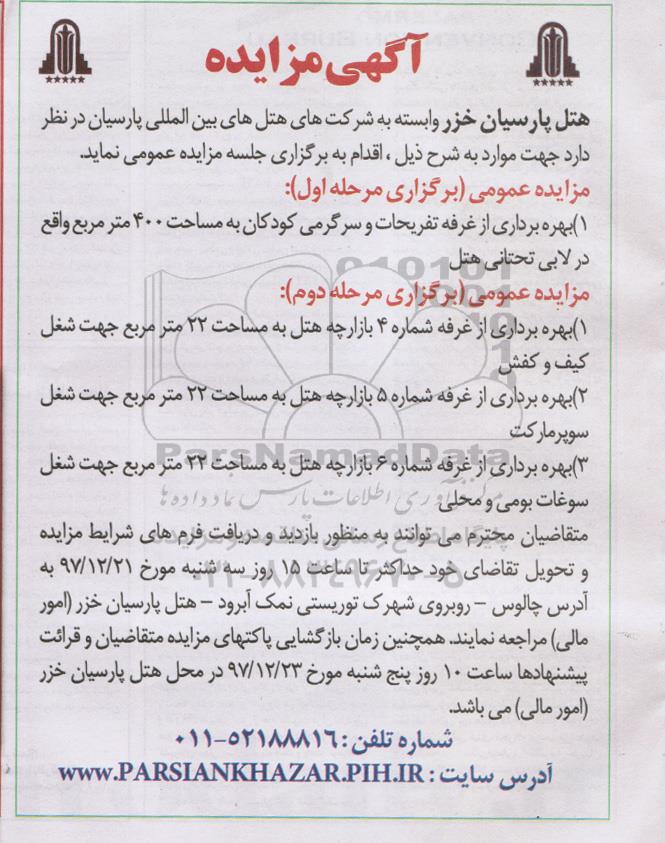 آگهی مزایده
هتل پارسیان خزر وابسته به شرکت های هتل های بین المللی پارسیان در نظر
دارد جهت موارد به شرح ذیل ، اقدام به برگزاری جلسه مزایده عمومی نماید.
مزایده عمومی (برگزاری مرحله اول):
۱)بهره برداری از غرفه تفریحات و سرگرمی کودکان به مساحت ۴۰۰ متر مربع واقع
در لابی تحتانی هتل
مزایده عمومی (برگزاری مرحله دوم):
۱)بهره برداری از غرفه شماره ۴ بازارچه هتل به مساحت ۲۲ متر مربع جهت شغل
کیف و کفش
۲)بهره برداری از غرفه شماره ۵ بازارچه هتل به مساحت ۲۲ متر مربع جهت شغل
سوپرمارکت
ParsNamadData
۳)بهره برداری از غرفه شماره ۶ بازارچه هتل به مساحت ۲۲ متر مربع جهت شغل
سوغات بومی و محلی
متقاضیان محترم می توانند به منظور بازدید و دریافت فرم های شرایط مزایده
و تحویل تقاضای خود حداکثر تا ساعت ۱۵ روز سه شنبه مورخ ۹۷/۱۲/۲۱ به
۰۲۱-۸۸۳۴۹۶۷۰-۵
آدرس چالوس – روبروی شهرک توریستی نمک آبرود – هتل پارسیان خزر (امور
مالی) مراجعه نمایند. همچنین زمان بازگشایی پاکتهای مزایده متقاضیان و قرائت
پیشنهادها ساعت ۱۰ روز پنج شنبه مورخ ۹۷/۱۲/۲۳ در محل هتل پارسیان خزر
(امور مالی) می باشد.
شماره تلفن : ۵۲۱۸۸۸۱۶-۰۱۱
آدرس سایت : www.PARSIANKHAZAR.PIH.IR